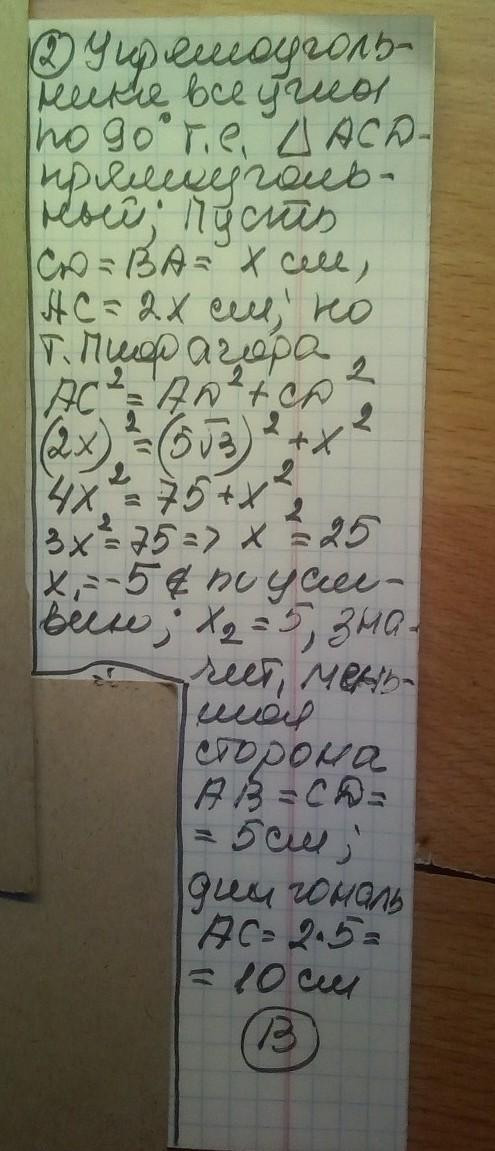 ② У прямоуголь-
ника все углы
по 90° т.е. △ ACD-
прямоуголь-
ный; Пусть
CD = BA = x см,
AC = 2x см; по
т. Пифагора
AC² = AD² + CD²
(2x)² = (5√3)² + x²
4x² = 75 + x²
3x² = 75 => x² = 25
x₁ = -5 ∉ по усло-
вию; x₂ = 5, зна-
чит, мень-
шая
сторона
AB = CD =
= 5 см;
диагональ
AC = 2·5 =
= 10 см
В